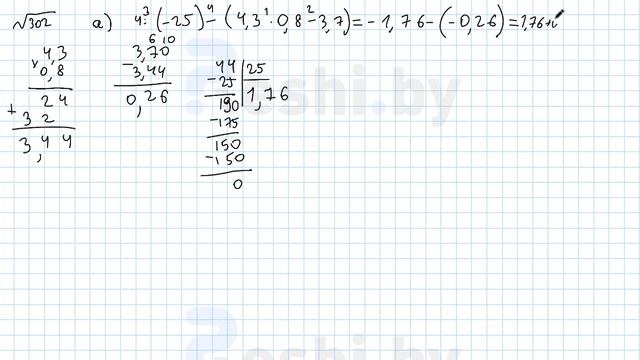 √302 а) 4:³(-25)-⁴(4,3·¹0,8-²3,7)=-1,76-(-0,26)=1,76+
4,3
× 0,8
2 4
+ 3 2
3,4 4
6 10
3,70
- 3,44
0,26
44 | 25
- 25 | 1,76
190
- 175
150
- 150
0
eshi.by
eshi.by